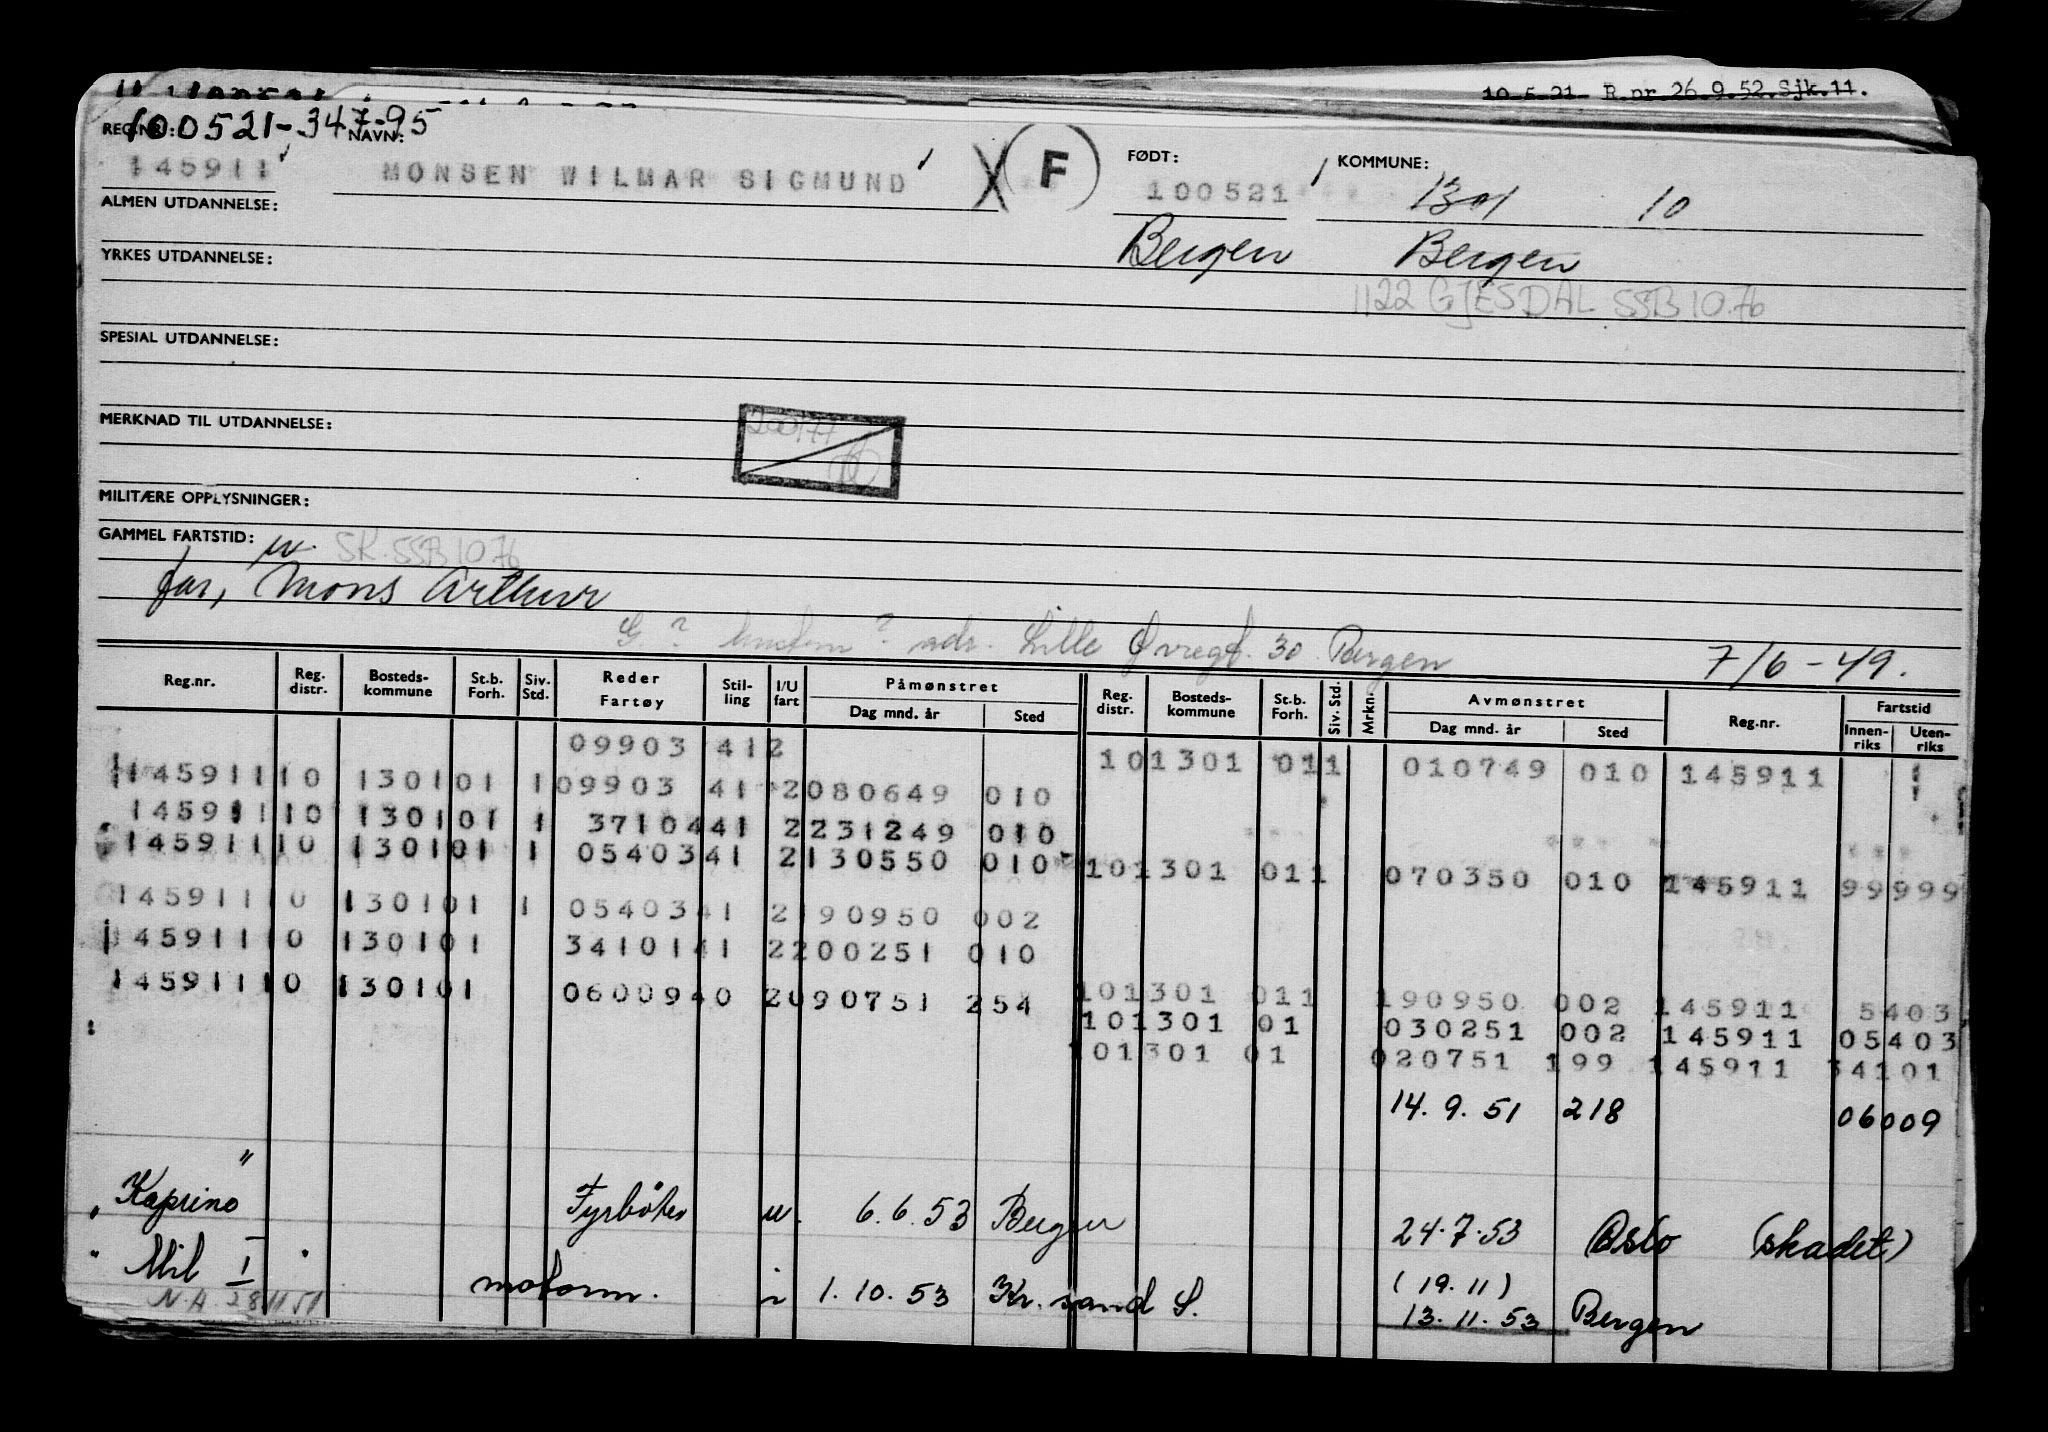 10.5.21 R.nr 26.9.52.Sjk.11.
100521-347-95
REG.NR.: NAVN: FØDT: KOMMUNE:
145911 MONSEN WILMAR SIGMUND X F 100521 1301 10
ALMEN UTDANNELSE:
Bergen Bergen
YRKES UTDANNELSE:
1122 GJESDAL SSB 10.76
SPESIAL UTDANNELSE:
MERKNAD TIL UTDANNELSE:
MILITÆRE OPPLYSNINGER:
GAMMEL FARTSTID: SK. SSB 10 76
far, Mons Arthur
G ? ? adr. Lille Øvregt. 30 Bergen 7/6-49.
Reg.nr. Reg. distr. Bosteds-kommune St.b. Forh. Siv. Std. Reder Fartøy Stil-ling I/U fart Påmønstret Dag mnd. år Sted Reg. distr. Bosteds-kommune St.b. Forh. Siv. Std. Mrkn. Avmønstret Dag mnd. år Sted Reg.nr. Fartstid Innen-riks Uten-riks
09903 412
101301 011 010749 010 145911
14591110 130101 1 09903 41 2080649 010
14591110 130101 1 3710441 2231249 010
14591110 130101 1 0540341 2130550 010
101301 011 070350 010 145911 99999
14591110 130101 1 0540341 2190950 002
14591110 130101 3410141 2200251 010
14591110 130101 0600940 2090751 254
101301 011 190950 002 145911 5403
101301 01 030251 002 145911 05403
101301 01 020751 199 145911 34101
14.9.51 218 06009
"Kaprino" Fyrbøter u. 6.6.53 Bergen 24.7.53 Oslo (skadet)
"Mil I" motorm. i 1.10.53 Kr.sand S. (19.11)
13.11.53 Bergen
N.A. 28/11 51